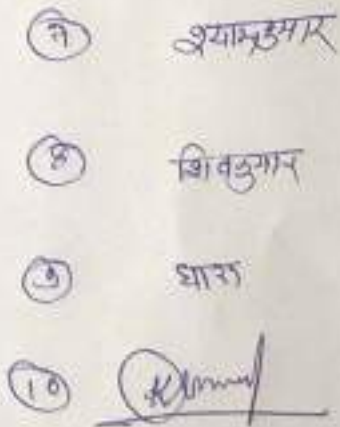 ७ श्यामकुमार
८ शिवकुमार
९ धारा
10